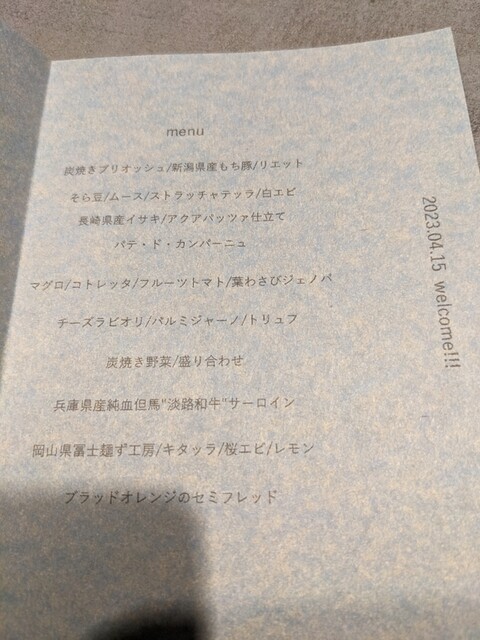 menu
炭焼きブリオッシュ/新潟県産もち豚/リエット
そら豆/ムース/ストラッチャテッラ/白エビ
長崎県産イサキ/アクアパッツァ仕立て
パテ・ド・カンパーニュ
マグロ/コトレッタ/フルーツトマト/葉わさびジェノバ
チーズラビオリ/パルミジャーノ/トリュフ
炭焼き野菜/盛り合わせ
兵庫県産純血但馬"淡路和牛"サーロイン
岡山県冨士麺ず工房/キタッラ/桜エビ/レモン
ブラッドオレンジのセミフレッド
2023.04.15 welcome!!!